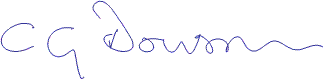 C G Dowson